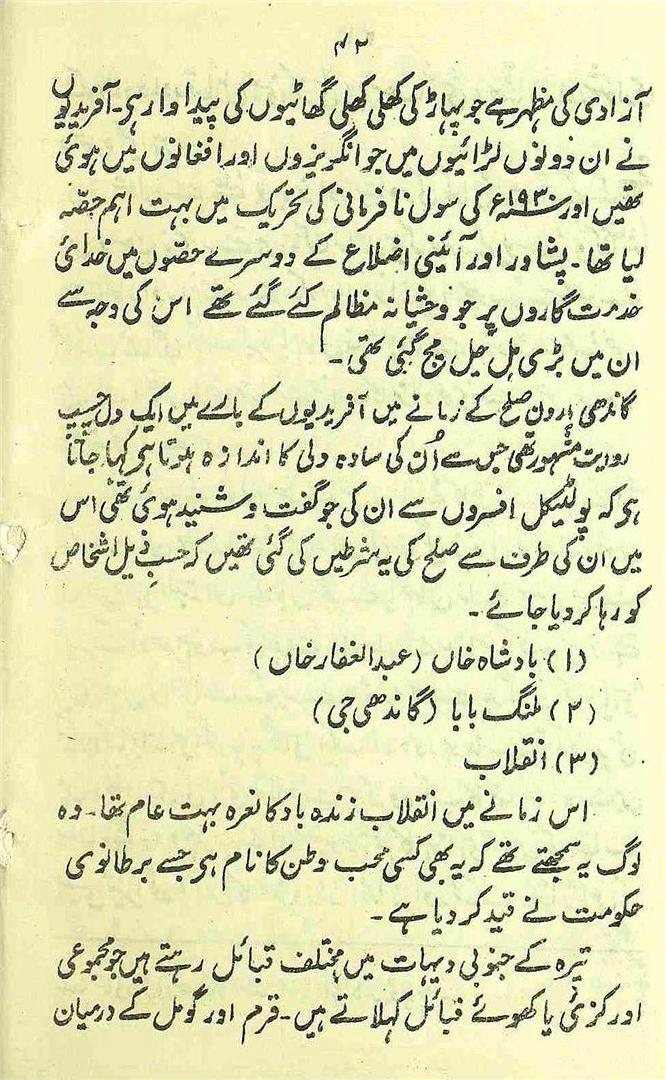 ۴۲
آزادی کی مظہر ہے جو پہاڑ کی کھلی کھلی گھاٹیوں کی پیداوار ہی۔ آفریدیوں
نے ان دونوں لڑائیوں میں جو انگریزوں اور افغانوں میں ہوئی
تھیں اور ۱۹۳۰ء کی سول نا فرمانی کی تحریک میں بہت اہم حصّہ
لیا تھا۔ پشاور اور آئینی اضلاع کے دوسرے حصّوں میں خدائی
خدمت گاروں پر جو وحشیانہ مظالم کئے گئے تھے اس کی وجہ سے
ان میں بڑی ہل چل مچ گئی تھی۔
گاندھی اِرون صلح کے زمانے میں آفریدیوں کے بارے میں ایک دل چسپ
روایت مشہور تھی جس سے اُن کی سادہ دلی کا اندازہ ہوتا ہی کہا جاتا
ہی کہ پولٹیکل افسروں سے ان کی جو گفت و شنید ہوئی تھی اس
میں ان کی طرف سے صلح کی یہ شرطیں کی گئی تھیں کہ حسبِ ذیل اشخاص
کو رہا کر دیا جائے۔
(۱) بادشاہ خاں (عبدالغفار خاں)
(۲) ملنگ بابا (گاندھی جی)
(۳) انقلاب
اس زمانے میں انقلاب زندہ باد کا نعرہ بہت عام تھا۔ وہ
لوگ یہ سمجھتے تھے کہ یہ بھی کسی محب وطن کا نام ہی جسے برطانوی
حکومت نے قید کر دیا ہے۔
تیرہ کے جنوبی دیہات میں مختلف قبائل رہتے ہیں جو مجموعی
اورکزئی یا کھوئے قبائل کہلاتے ہیں۔ قرم اور گومل کے درمیان